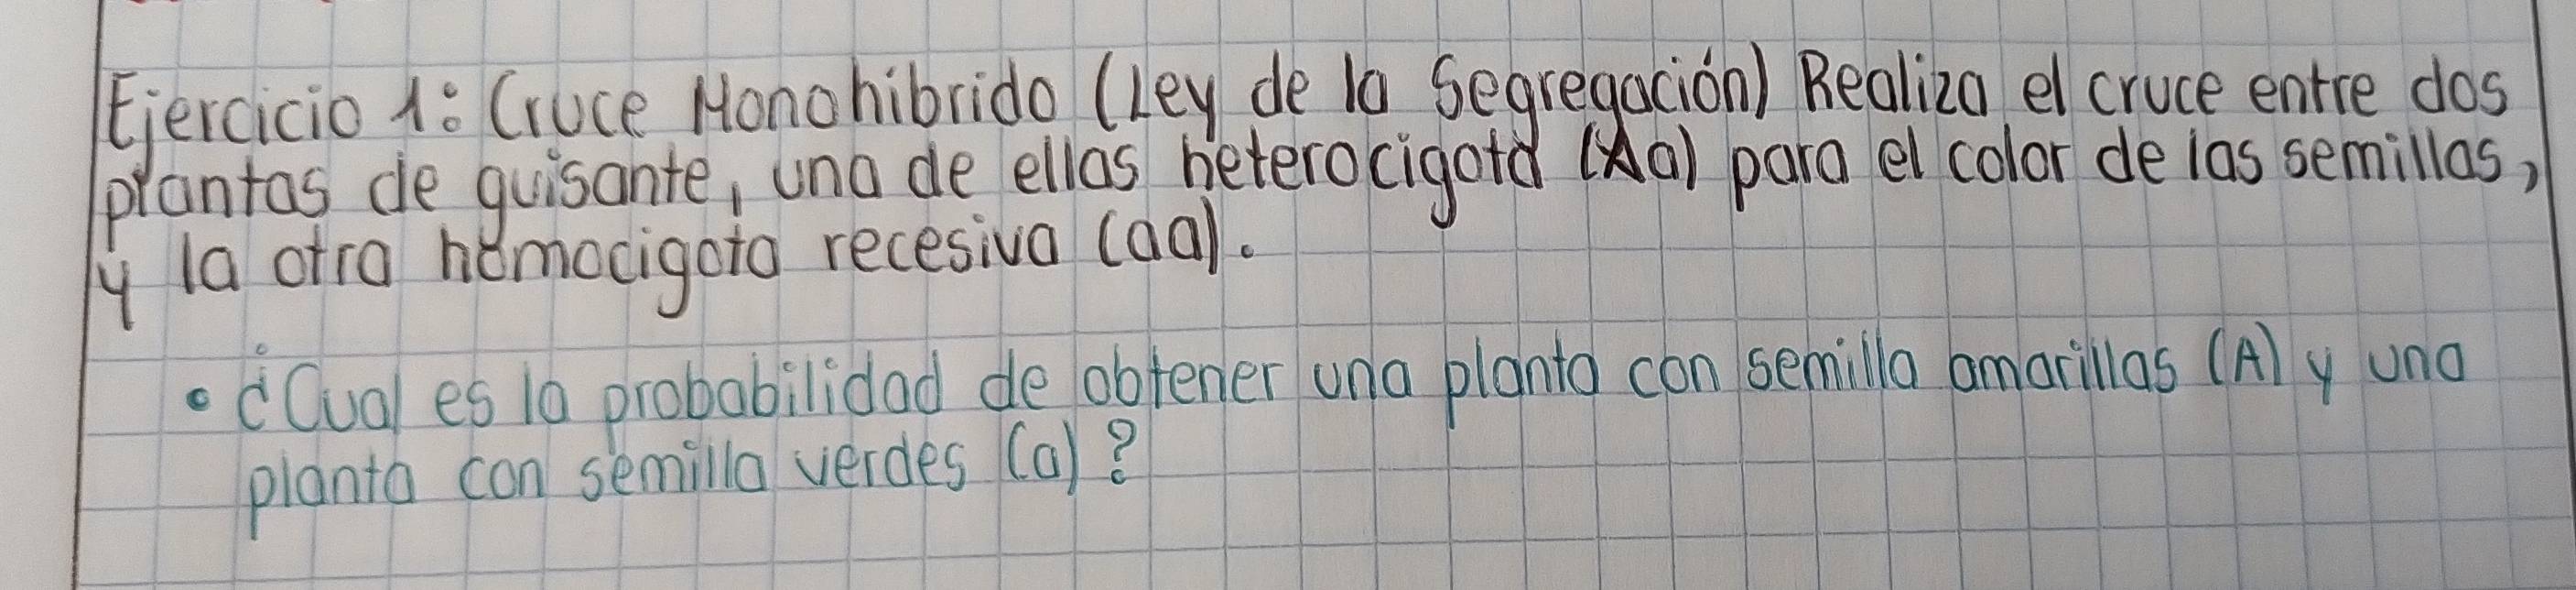 Ejercicio 1: Cruce Monohibrido (Ley de la Segregación) Realiza el cruce entre dos
plantas de guisante, una de ellas heterocigota (Aa) para el color de las semillas,
y la otra homocigota recesiva (aa).
• ¿Cual es la probabilidad de obtener una planta con semilla amarillas (A) y una
planta con semilla verdes (a)?